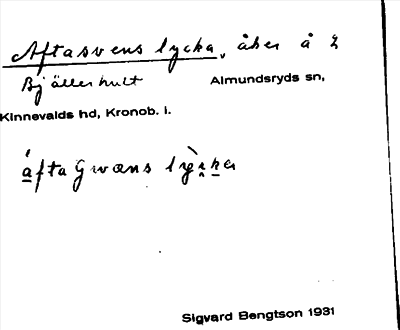 Aftasvens lycka, åker å 2
Bjällerhult Almundsryds sn,
Kinnevalds hd, Kronob. l.
Sigvard Bengtson 1931